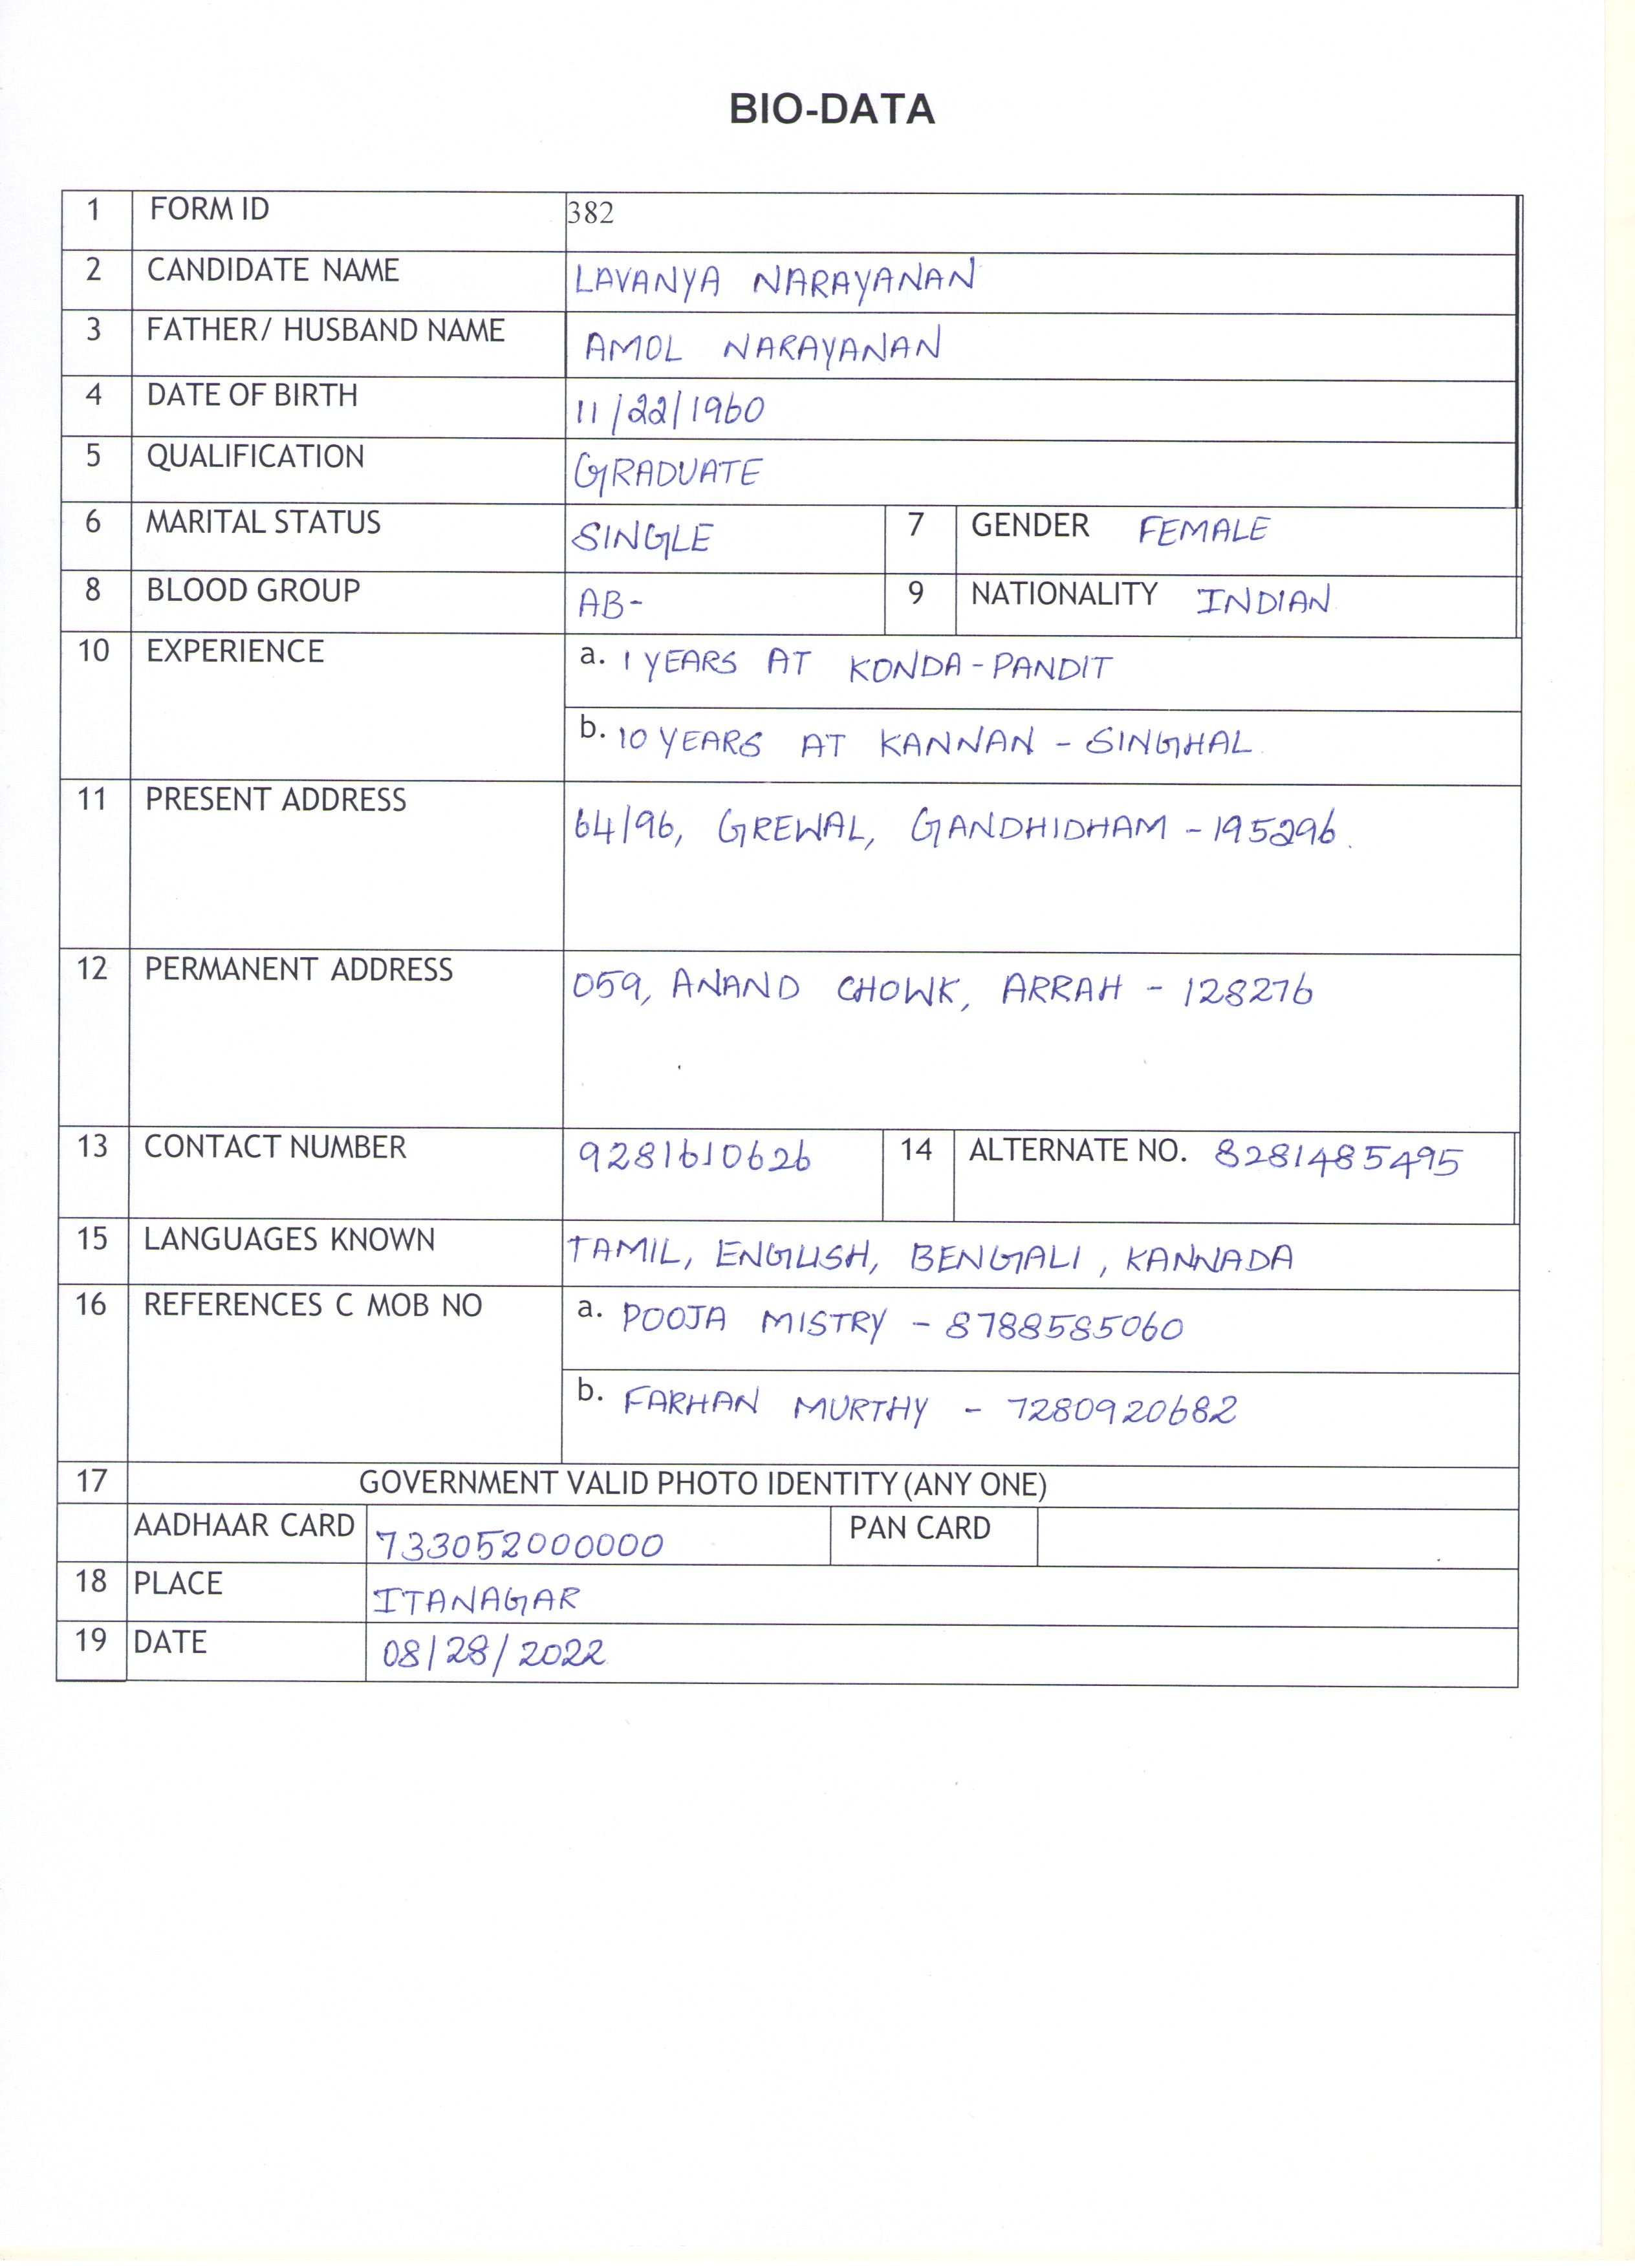 BIO-DATA
1 FORM ID 382
2 CANDIDATE NAME LAVANYA NARAYANAN
3 FATHER/ HUSBAND NAME AMOL NARAYANAN
4 DATE OF BIRTH 11/22/1960
5 QUALIFICATION GRADUATE
6 MARITAL STATUS SINGLE 7 GENDER FEMALE
8 BLOOD GROUP AB- 9 NATIONALITY INDIAN
10 EXPERIENCE a. 1 YEARS AT KONDA-PANDIT
b. 10 YEARS AT KANNAN - SINGHAL
11 PRESENT ADDRESS 64/96, GREWAL, GANDHIDHAM - 195296.
12 PERMANENT ADDRESS 059, ANAND CHOWK, ARRAH - 128276
13 CONTACT NUMBER 9281610626 14 ALTERNATE NO. 8281485495
15 LANGUAGES KNOWN TAMIL, ENGLISH, BENGALI, KANNADA
16 REFERENCES C MOB NO a. POOJA MISTRY - 8788585060
b. FARHAN MURTHY - 7280920682
17 GOVERNMENT VALID PHOTO IDENTITY (ANY ONE)
AADHAAR CARD 733052000000 PAN CARD
18 PLACE ITANAGAR
19 DATE 08/28/2022